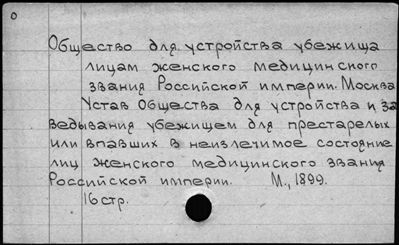 О
Общество для устройства убежища
лицам женского медицинского
звания Российской империи. Москва
Устав Общества для устройства и за
ведывания убежищем для престарелых
или впавших в неизлечимое состояние
лиц женского медицинского звания
Российской империи. М., 1899.
16 стр.